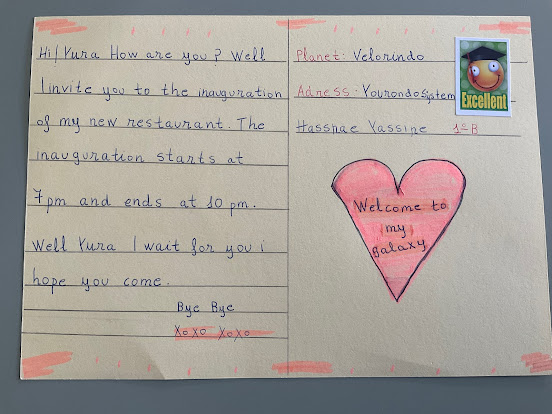 Hi! Yura How are you? Well
I invite you to the inauguration
of my new restaurant. The
inauguration starts at
7pm and ends at 10 pm.
Well Yura I wait for you i
hope you come.
Bye Bye
XoXo XoXo
Planet: Velorindo
Adress: Yourondosystem
Hassnae Yassine 1º B
Excellent
Welcome to
my
galaxy